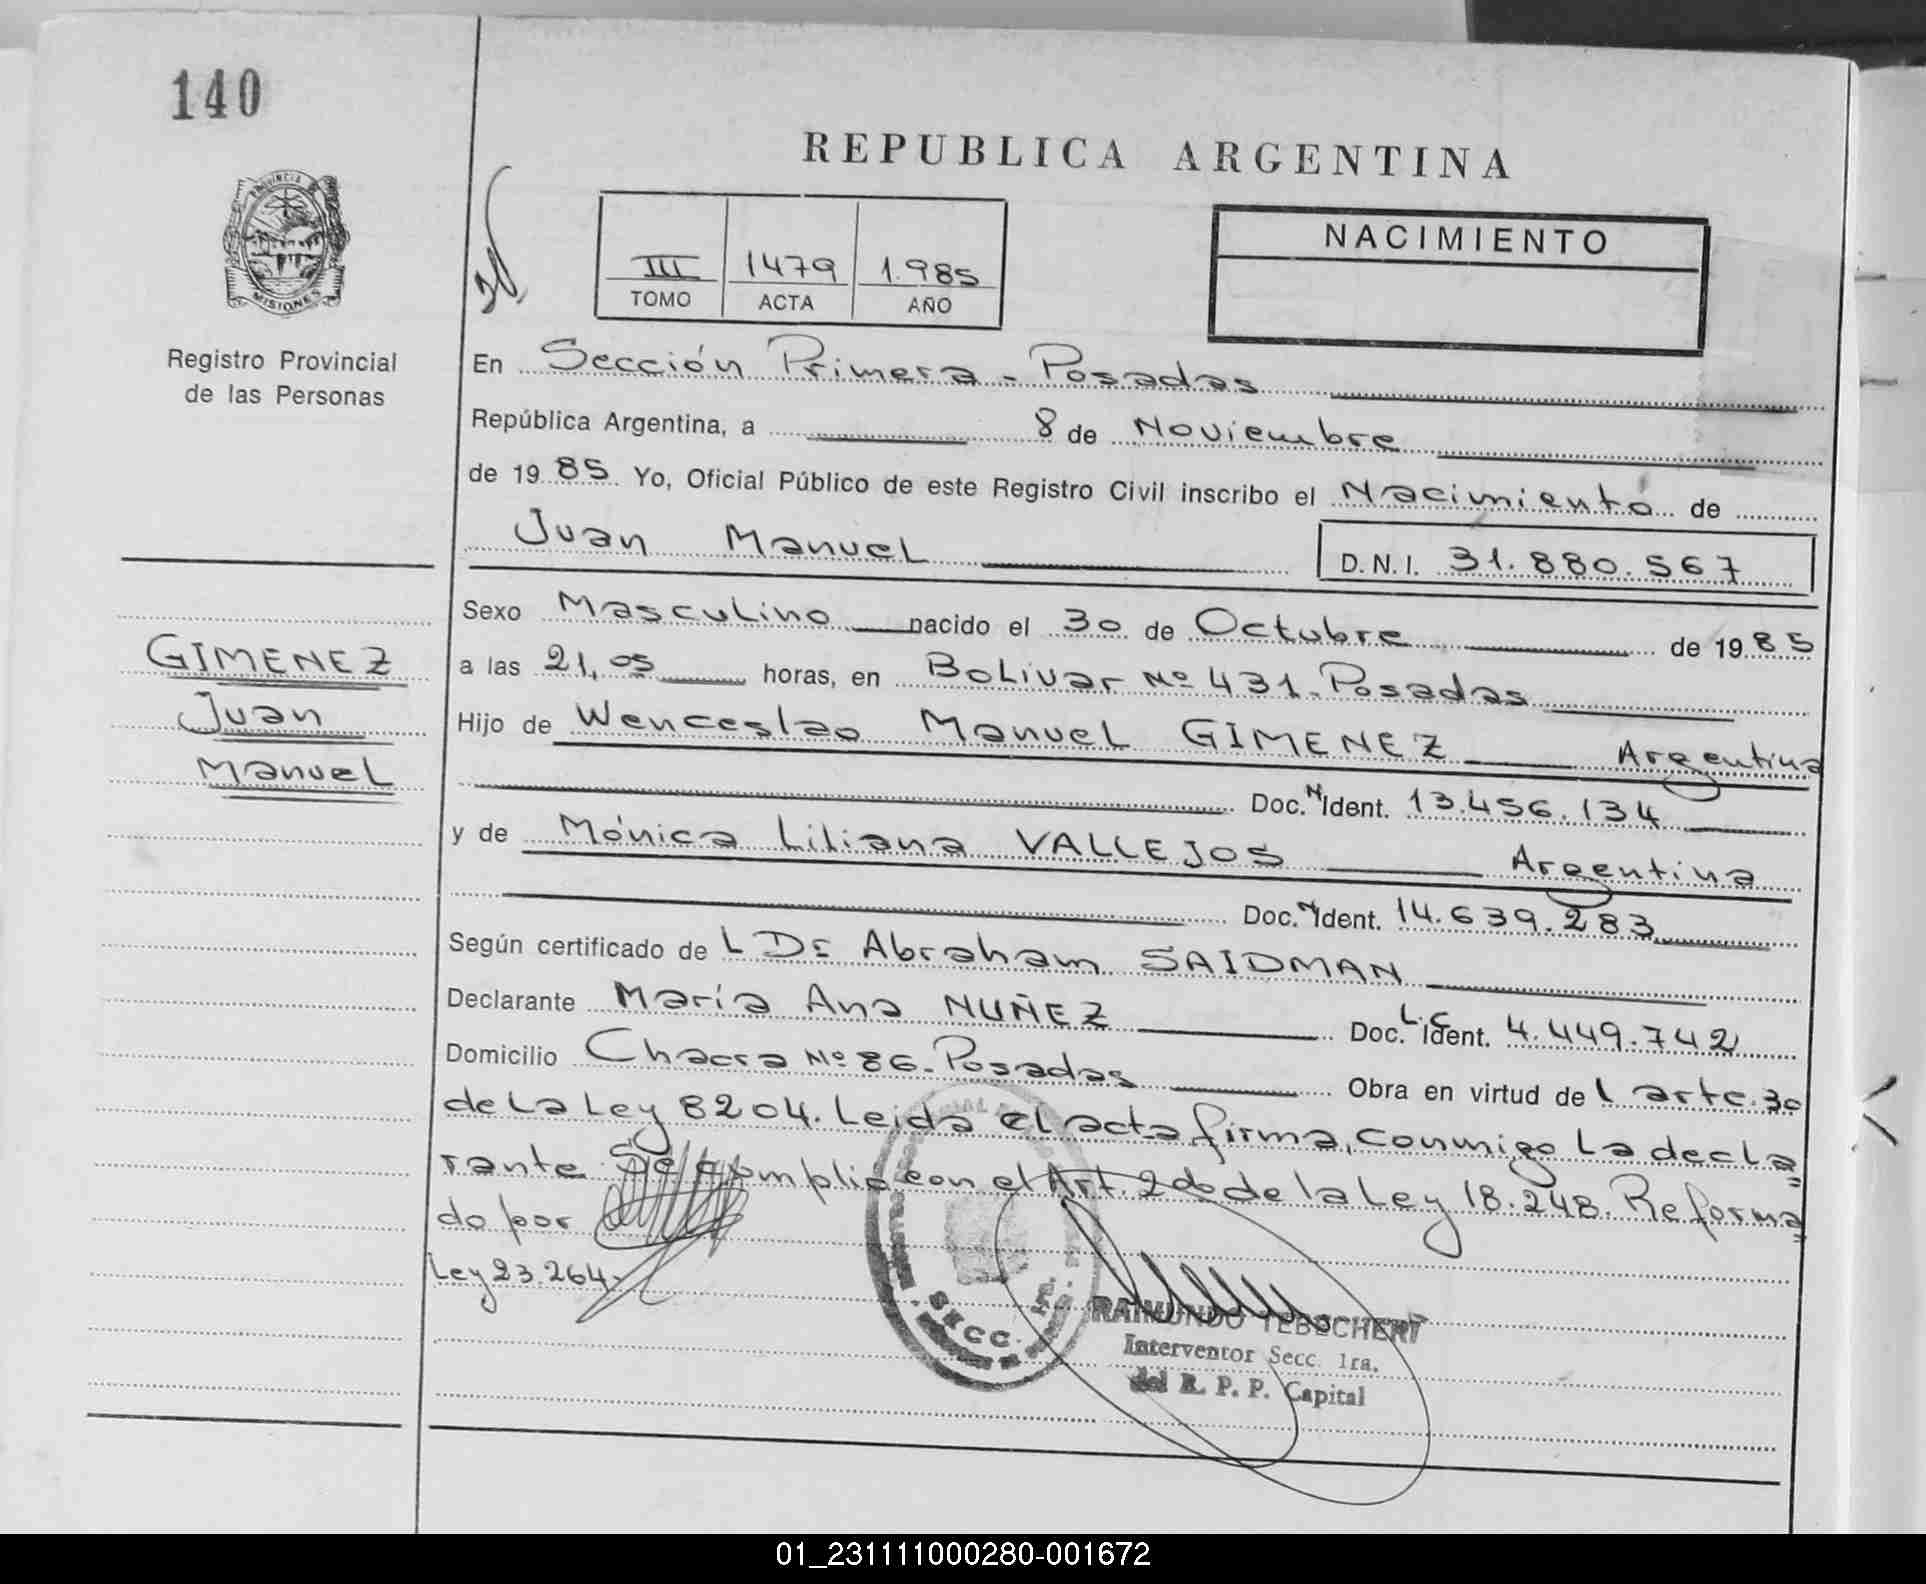 140
REPUBLICA ARGENTINA
PROVINCIA DE
MISIONES
III 1479 1.985
TOMO ACTA AÑO
NACIMIENTO
Registro Provincial
de las Personas
En Sección Primera - Posadas
República Argentina, a 8 de Noviembre
de 1985 Yo, Oficial Público de este Registro Civil inscribo el Nacimiento de
Juan Manuel D.N.I. 31.880.567
Sexo Masculino nacido el 30 de Octubre de 1985
GIMENEZ
Juan
Manuel
a las 21,05 horas, en Bolivar Nº 431. Posadas
Hijo de Wenceslao Manuel GIMENEZ Argentina
Doc. N Ident. 13.456.134
y de Mónica Liliana VALLEJOS Argentina
Doc. N Ident. 14.639.283
Según certificado de L Dr Abraham SAIDMAN
Declarante María Ana NUÑEZ Doc. L.C Ident. 4.449.742
Domicilio Chacra Nº 86. Posadas Obra en virtud de l artc. 30
de La Ley 8204. Leida el acta firma, conmigo La decla
rante Se cumplio con el Art. 2do de la Ley 18.248. Reforma
do por
Ley 23.264-
SECC. 1ra.
RAIMUNDO
Interventor Secc. 1ra.
del R. P. P. Capital
01_231111000280-001672